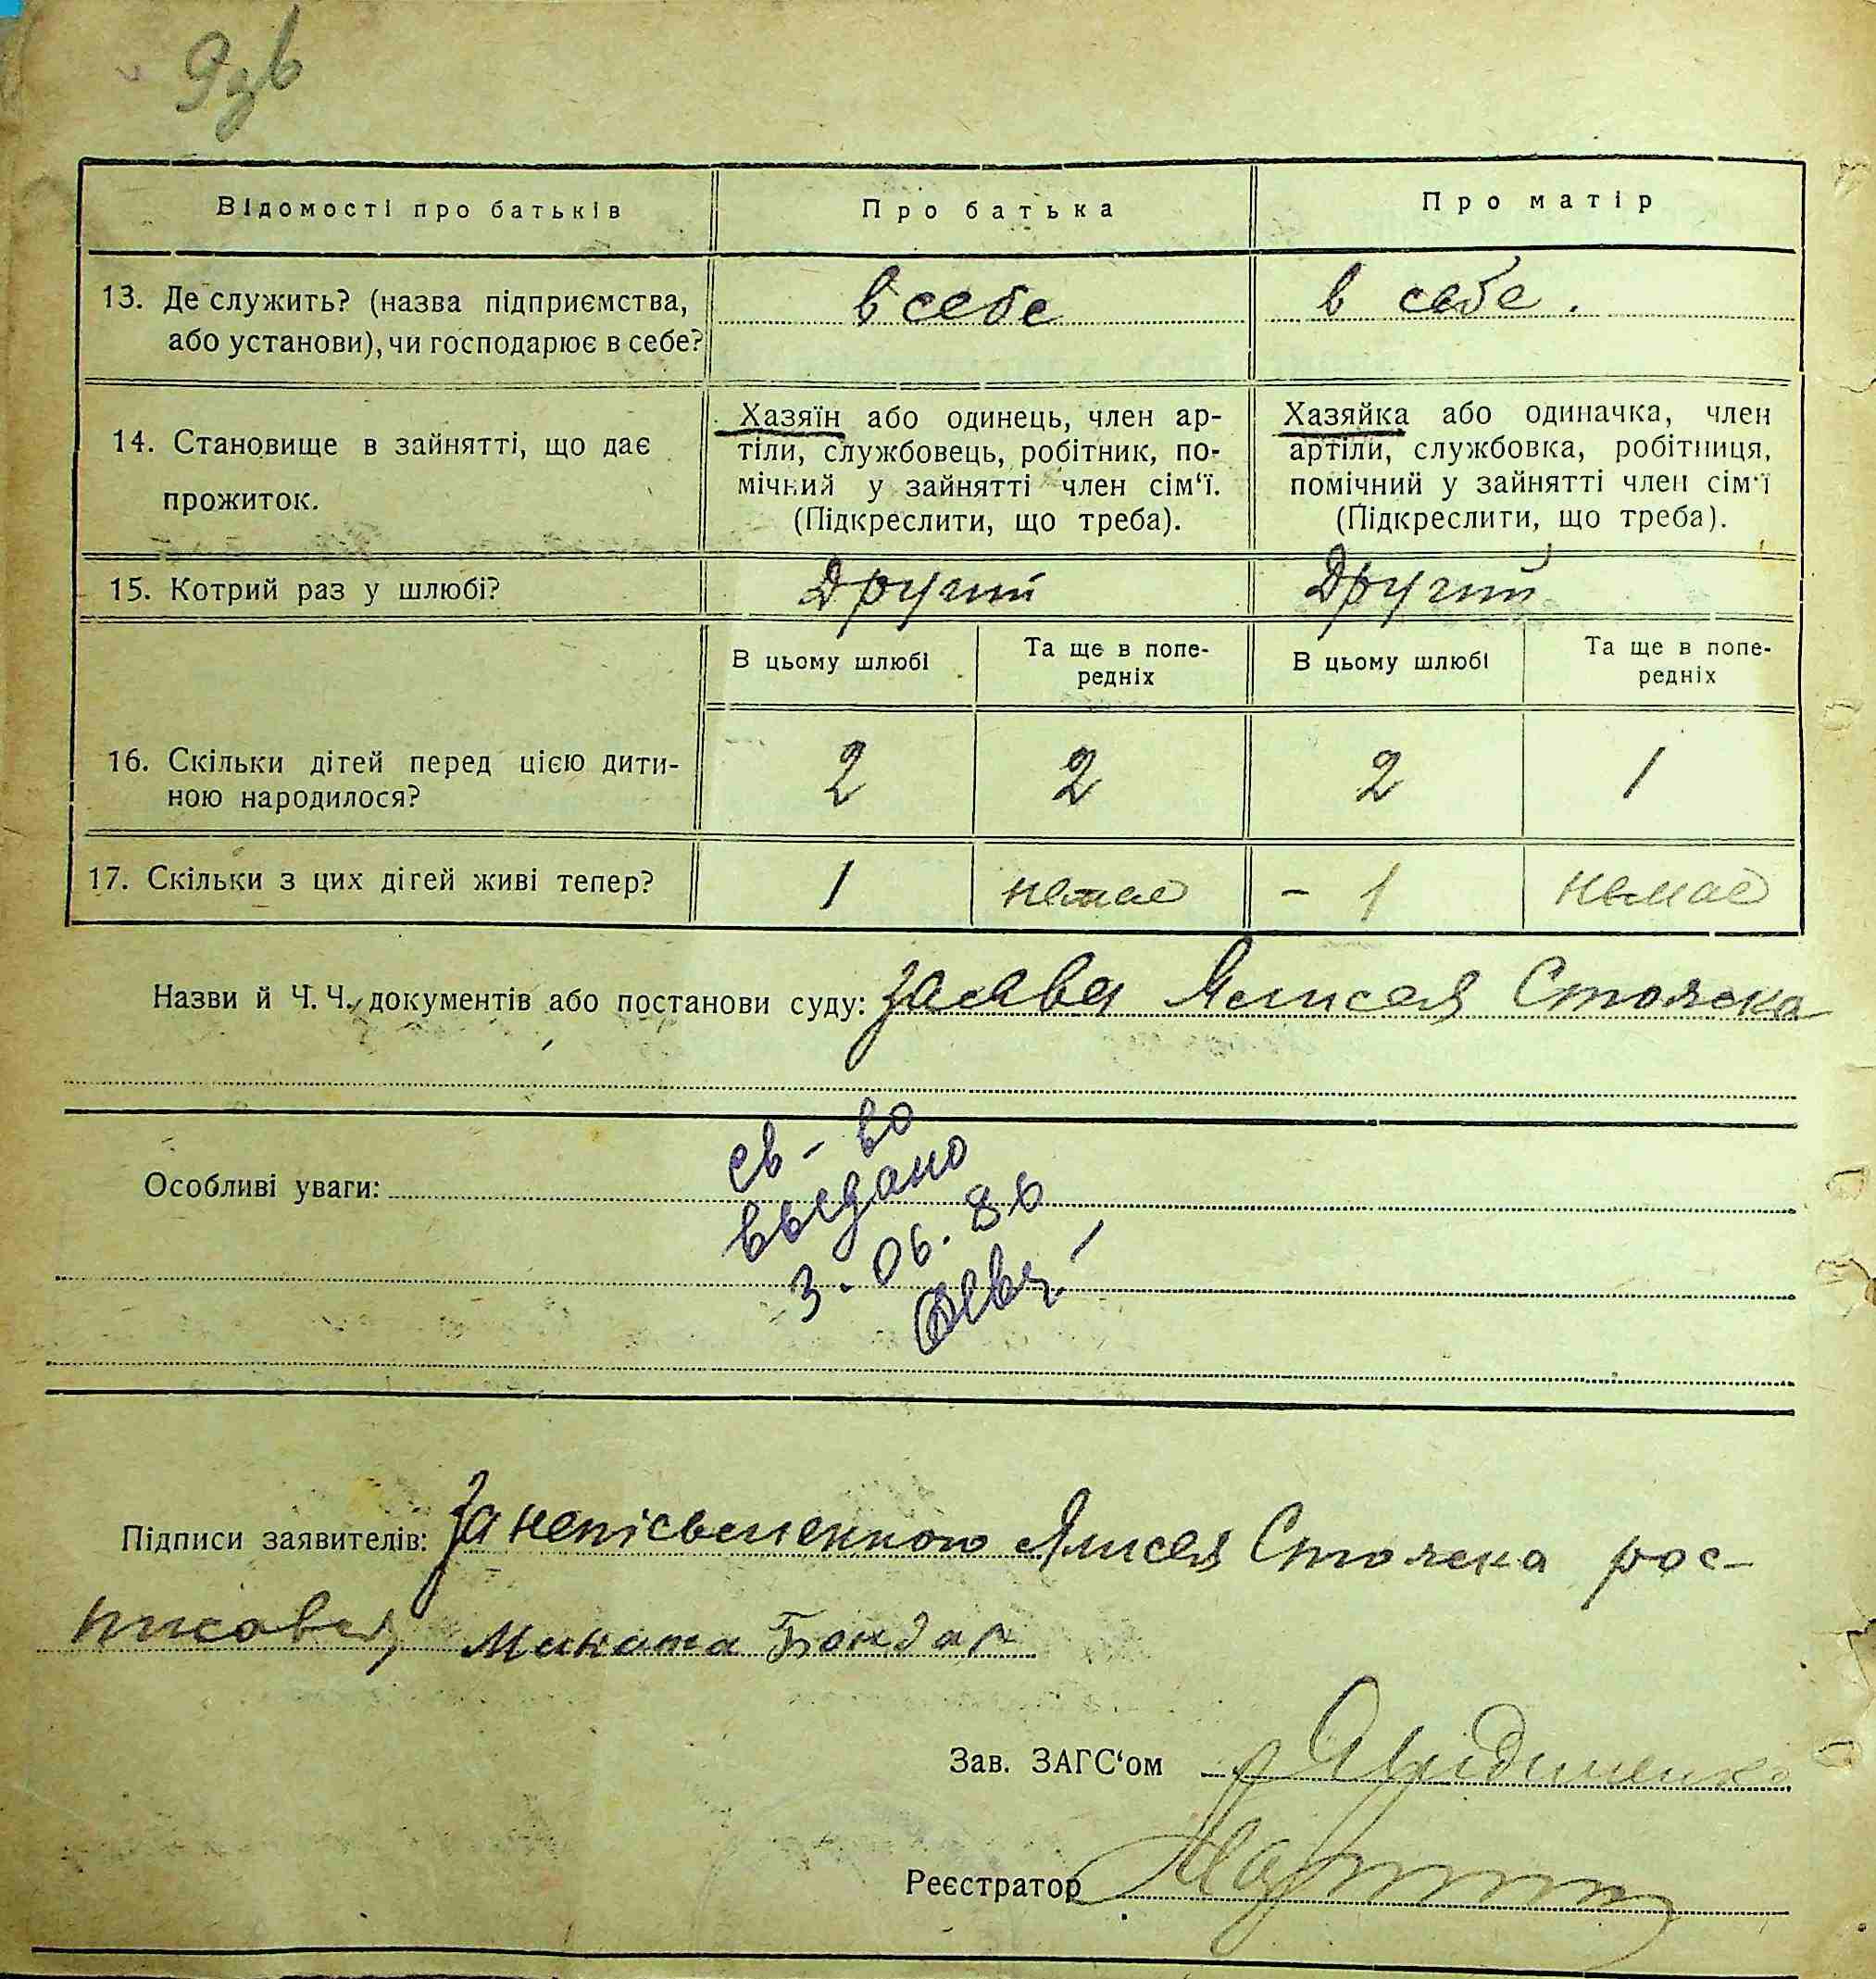 9зв
Відомості про батьків
Про батька
Про матір
13. Де служить? (назва підприємства,
або установи), чи господарює в себе?
в себе
в себе.
14. Становище в зайнятті, що дає
прожиток.
Хазяїн або одинець, член ар-
тіли, службовець, робітник, по-
мічний у зайнятті член сім'ї.
(Підкреслити, що треба).
Хазяйка або одиначка, член
артіли, службовка, робітниця,
помічний у зайнятті член сім'ї
(Підкреслити, що треба).
15. Котрий раз у шлюбі?
Другий
Другий
В цьому шлюбі
Та ще в попе-
редніх
В цьому шлюбі
Та ще в попе-
редніх
16. Скільки дітей перед цією дити-
ною народилося?
2
2
2
1
17. Скільки з цих дітей живі тепер?
1
немає
- 1
немає
Назви й Ч. Ч. документів або постанови суду: заява Ялисея Стояска
св-во
Особливі уваги:
выдано
3.06.86
Підписи заявителів: За неписьменного Ялисея Стояска рос-
писався Микита Бондар
Зав. ЗАГС'ом
Реєстратор